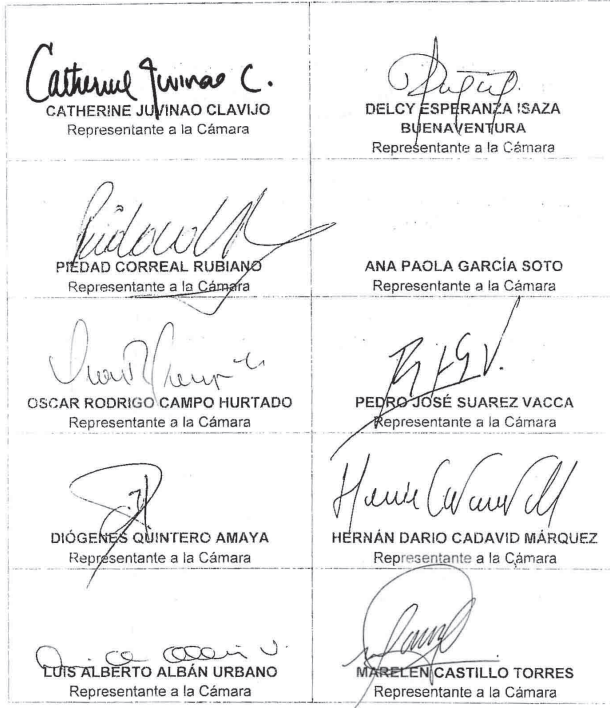 Catherine Juvinao C.
CATHERINE JUVINAO CLAVIJO
Representante a la Cámara
DELCY ESPERANZA ISAZA
BUENAVENTURA
Representante a la Cámara
PIEDAD CORREAL RUBIANO
Representante a la Cámara
ANA PAOLA GARCÍA SOTO
Representante a la Cámara
OSCAR RODRIGO CAMPO HURTADO
Representante a la Cámara
PEDRO JOSÉ SUAREZ VACCA
Representante a la Cámara
DIÓGENES QUINTERO AMAYA
Representante a la Cámara
HERNÁN DARIO CADAVID MÁRQUEZ
Representante a la Cámara
LUIS ALBERTO ALBÁN URBANO
Representante a la Cámara
MARELEN CASTILLO TORRES
Representante a la Cámara